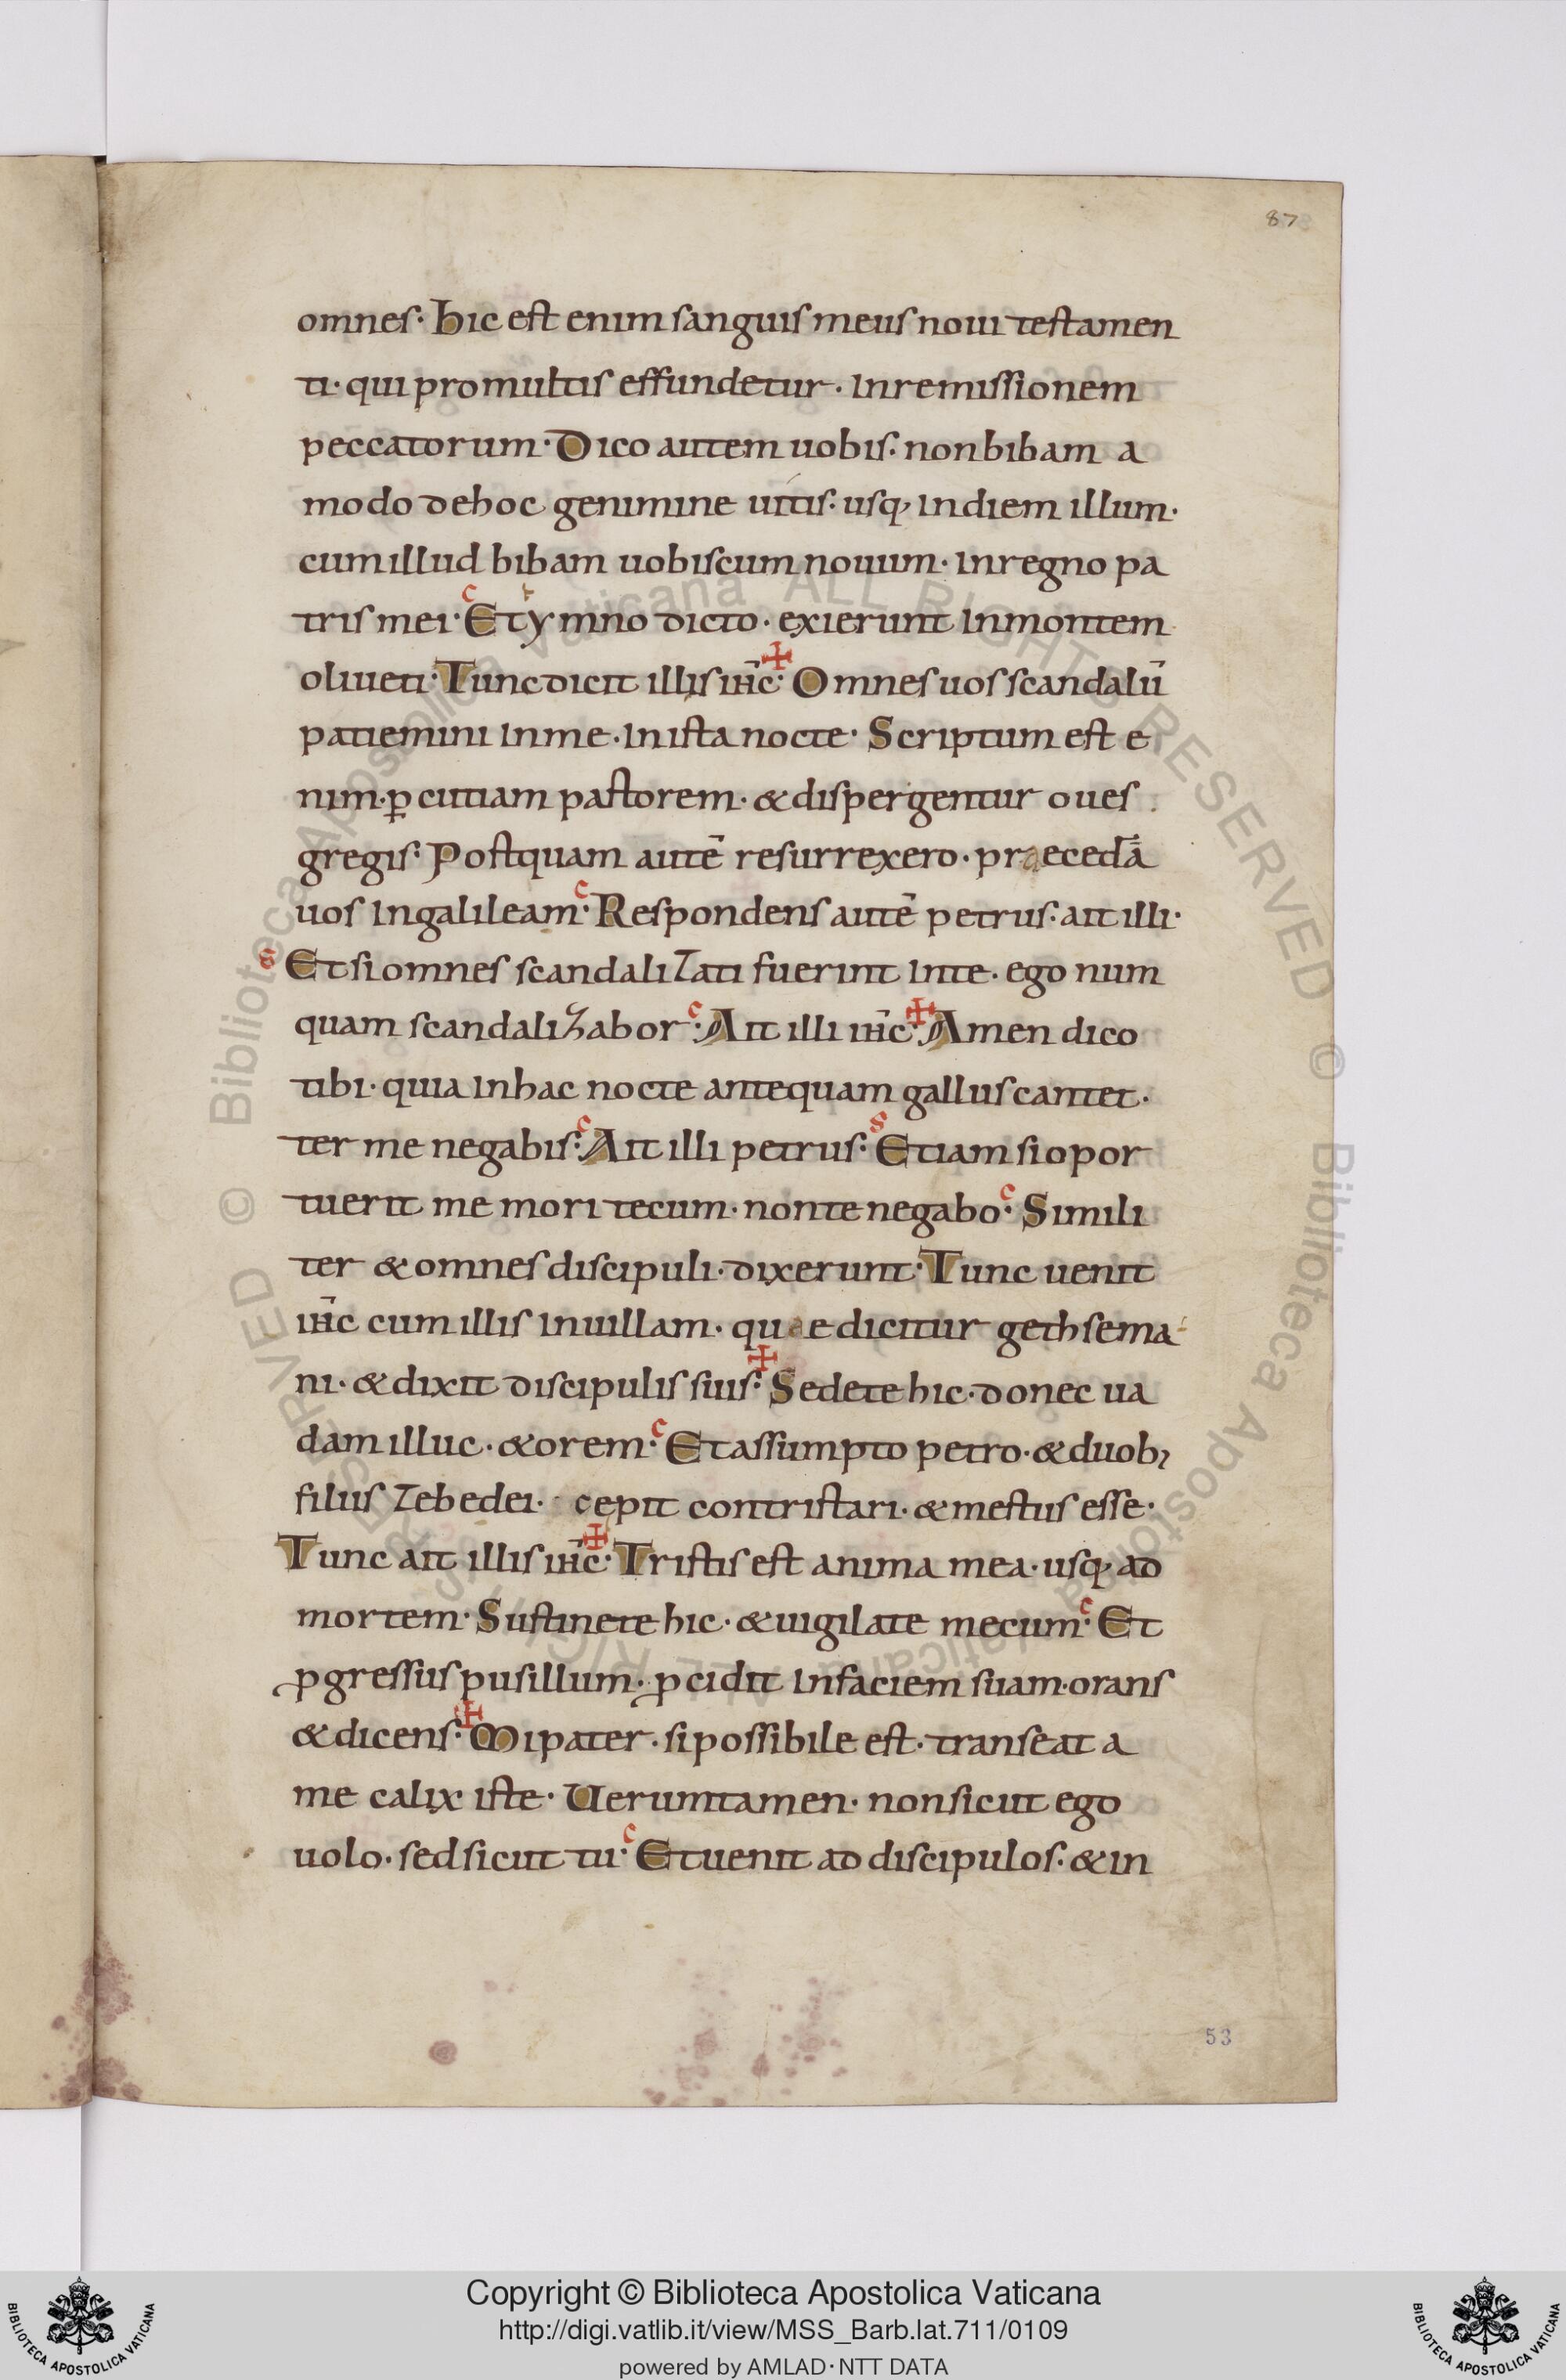 87
omnes· Hic est enim sanguis meus noui testamen
ti· qui pro multis effundetur· In remissionem
peccatorum· Dico autem uobis· non bibam a
modo de hoc genimine uitis· usq; in diem illum·
cum illud bibam uobiscum nouum· in regno pa
tris mei· c Et ymno dicto· exierunt in montem
oliueti· Tunc dicit illis ihc̄· ✠ Omnes uos scandalū
patiemini in me· in ista nocte· Scriptum est e
nim· ꝑcutiam pastorem· & dispergentur oues
gregis· Postquam autē resurrexero· praecedā
uos in galileam· c Respondens autē petrus· ait illi·
s Et si omnes scandalizati fuerint in te· ego num
quam scandalizabor· c Ait illi ihc̄· ✠ Amen dico
tibi· quia in hac nocte antequam gallus cantet·
ter me negabis· c Ait illi petrus· s Etiam si opor
tuerit me mori tecum· non te negabo· c Simili
ter & omnes discipuli· dixerunt· Tunc uenit
ihc̄ cum illis in uillam· quae dicitur gethsema
ni· & dixit discipulis suis· ✠ Sedete hic· donec ua
dam illuc· & orem· c Et assumpto petro· & duob;
filiis zebedei· cepit contristari· & mestus esse·
Tunc ait illis ihc̄· ✠ Tristis est anima mea· usq; ad
mortem· Sustinete hic· & uigilate mecum· c Et
ꝓgressus pusillum· ꝓcidit in faciem suam· orans
& dicens· ✠ Mi pater· si possibile est· transeat a
me calix iste· Uerumtamen· non sicut ego
uolo· sed sicut tu· c Et uenit ad discipulos· & in
53
© Biblioteca Apostolica Vaticana ALL RIGHTS RESERVED © Biblioteca Apostolica Vaticana ALL RIGHTS RESERVED
Copyright © Biblioteca Apostolica Vaticana
http://digi.vatlib.it/view/MSS_Barb.lat.711/0109
powered by AMLAD·NTT DATA
BIBLIOTECA APOSTOLICA VATICANA
BIBLIOTECA APOSTOLICA VATICANA